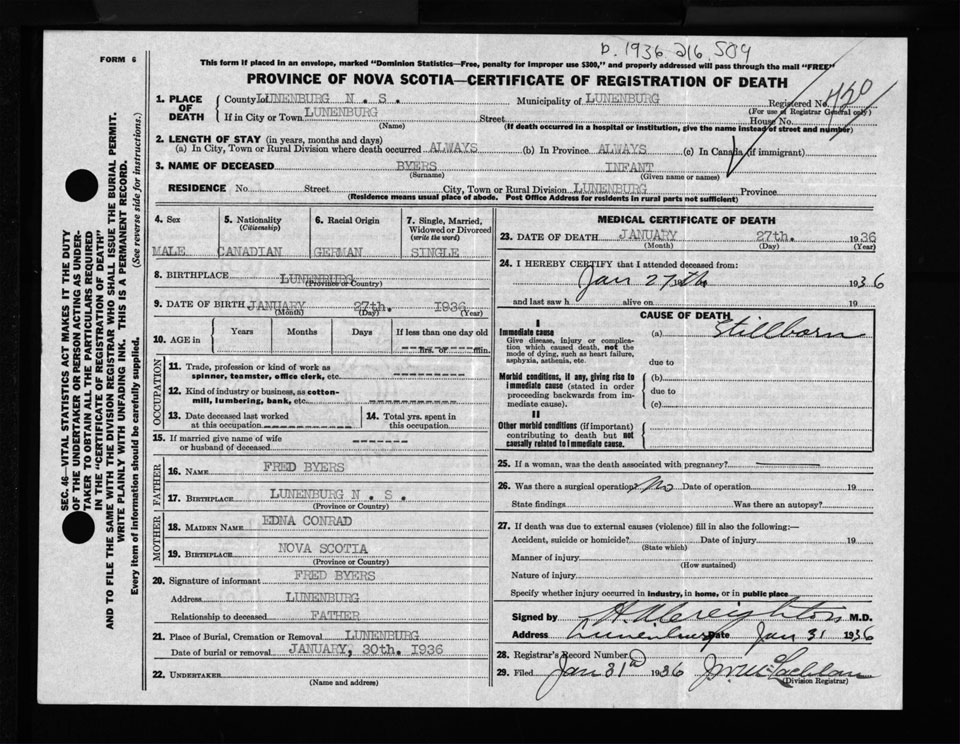 b. 1936 216 509
FORM 6
This form if placed in an envelope, marked "Dominion Statistics—Free, penalty for improper use $300," and properly addressed will pass through the mail "FREE"
PROVINCE OF NOVA SCOTIA—CERTIFICATE OF REGISTRATION OF DEATH
1. PLACE OF DEATH
County of LUNENBURG N. S. Municipality of LUNENBURG Registered No. 450
(For use of Registrar General only)
If in City or Town LUNENBURG Street House No.
(Name) (If death occurred in a hospital or institution, give the name instead of street and number)
2. LENGTH OF STAY (in years, months and days)
(a) In City, Town or Rural Division where death occurred ALWAYS (b) In Province ALWAYS (c) In Canada (if immigrant)
3. NAME OF DECEASED BYERS INFANT
(Surname) (Given name or names)
RESIDENCE No. Street City, Town or Rural Division LUNENBURG Province
(Residence means usual place of abode. Post Office Address for residents in rural parts not sufficient)
4. Sex 5. Nationality (Citizenship) 6. Racial Origin 7. Single, Married, Widowed or Divorced (write the word)
MALE CANADIAN GERMAN SINGLE
8. BIRTHPLACE LUNENBURG
(Province or Country)
9. DATE OF BIRTH JANUARY 27th. 1936
(Month) (Day) (Year)
10. AGE in Years Months Days If less than one day old
hrs. or min.
OCCUPATION
11. Trade, profession or kind of work as
spinner, teamster, office clerk, etc.
12. Kind of industry or business, as cotton-
mill, lumbering, bank, etc.
13. Date deceased last worked
at this occupation
14. Total yrs. spent in
this occupation
15. If married give name of wife
or husband of deceased
FATHER
16. NAME FRED BYERS
17. BIRTHPLACE LUNENBURG N. S.
(Province or Country)
MOTHER
18. MAIDEN NAME EDNA CONRAD
19. BIRTHPLACE NOVA SCOTIA
(Province or Country)
20. Signature of informant FRED BYERS
Address LUNENBURG
Relationship to deceased FATHER
21. Place of Burial, Cremation or Removal LUNENBURG
Date of burial or removal JANUARY, 30th. 1936
22. UNDERTAKER
(Name and address)
MEDICAL CERTIFICATE OF DEATH
23. DATE OF DEATH JANUARY 27th. 1936
(Month) (Day) (Year)
24. I HEREBY CERTIFY that I attended deceased from:
Jan 27th 1936
and last saw h alive on 19
CAUSE OF DEATH
I
Immediate cause (a) Stillborn
Give disease, injury or complica-
tion which caused death, not the
mode of dying, such as heart failure,
asphyxia, asthenia, etc. due to
Morbid conditions, if any, giving rise to
immediate cause (stated in order
proceeding backwards from im-
mediate cause).
(b)
due to
(c)
II
Other morbid conditions (if important)
contributing to death but not
causally related to Immediate cause.
25. If a woman, was the death associated with pregnancy?
26. Was there a surgical operation? No Date of operation 19
State findings Was there an autopsy?
27. If death was due to external causes (violence) fill in also the following:—
Accident, suicide or homicide? Date of injury 19
(State which)
Manner of injury
(How sustained)
Nature of injury
Specify whether injury occurred in industry, in home, or in public place
Signed by Creighton M.D.
Address Lunenburg Date Jan 31 1936
28. Registrar's Record Number
29. Filed Jan 31st 1936 McLachlan
(Division Registrar)
SEC. 46—VITAL STATISTICS ACT MAKES IT THE DUTY
OF THE UNDERTAKER OR PERSON ACTING AS UNDER-
TAKER TO OBTAIN ALL THE PARTICULARS REQUIRED
IN THE "CERTIFICATE OF REGISTRATION OF DEATH"
AND TO FILE THE SAME WITH THE DIVISION REGISTRAR WHO SHALL ISSUE THE BURIAL PERMIT.
WRITE PLAINLY WITH UNFADING INK. THIS IS A PERMANENT RECORD.
Every item of information should be carefully supplied. (See reverse side for instructions.)